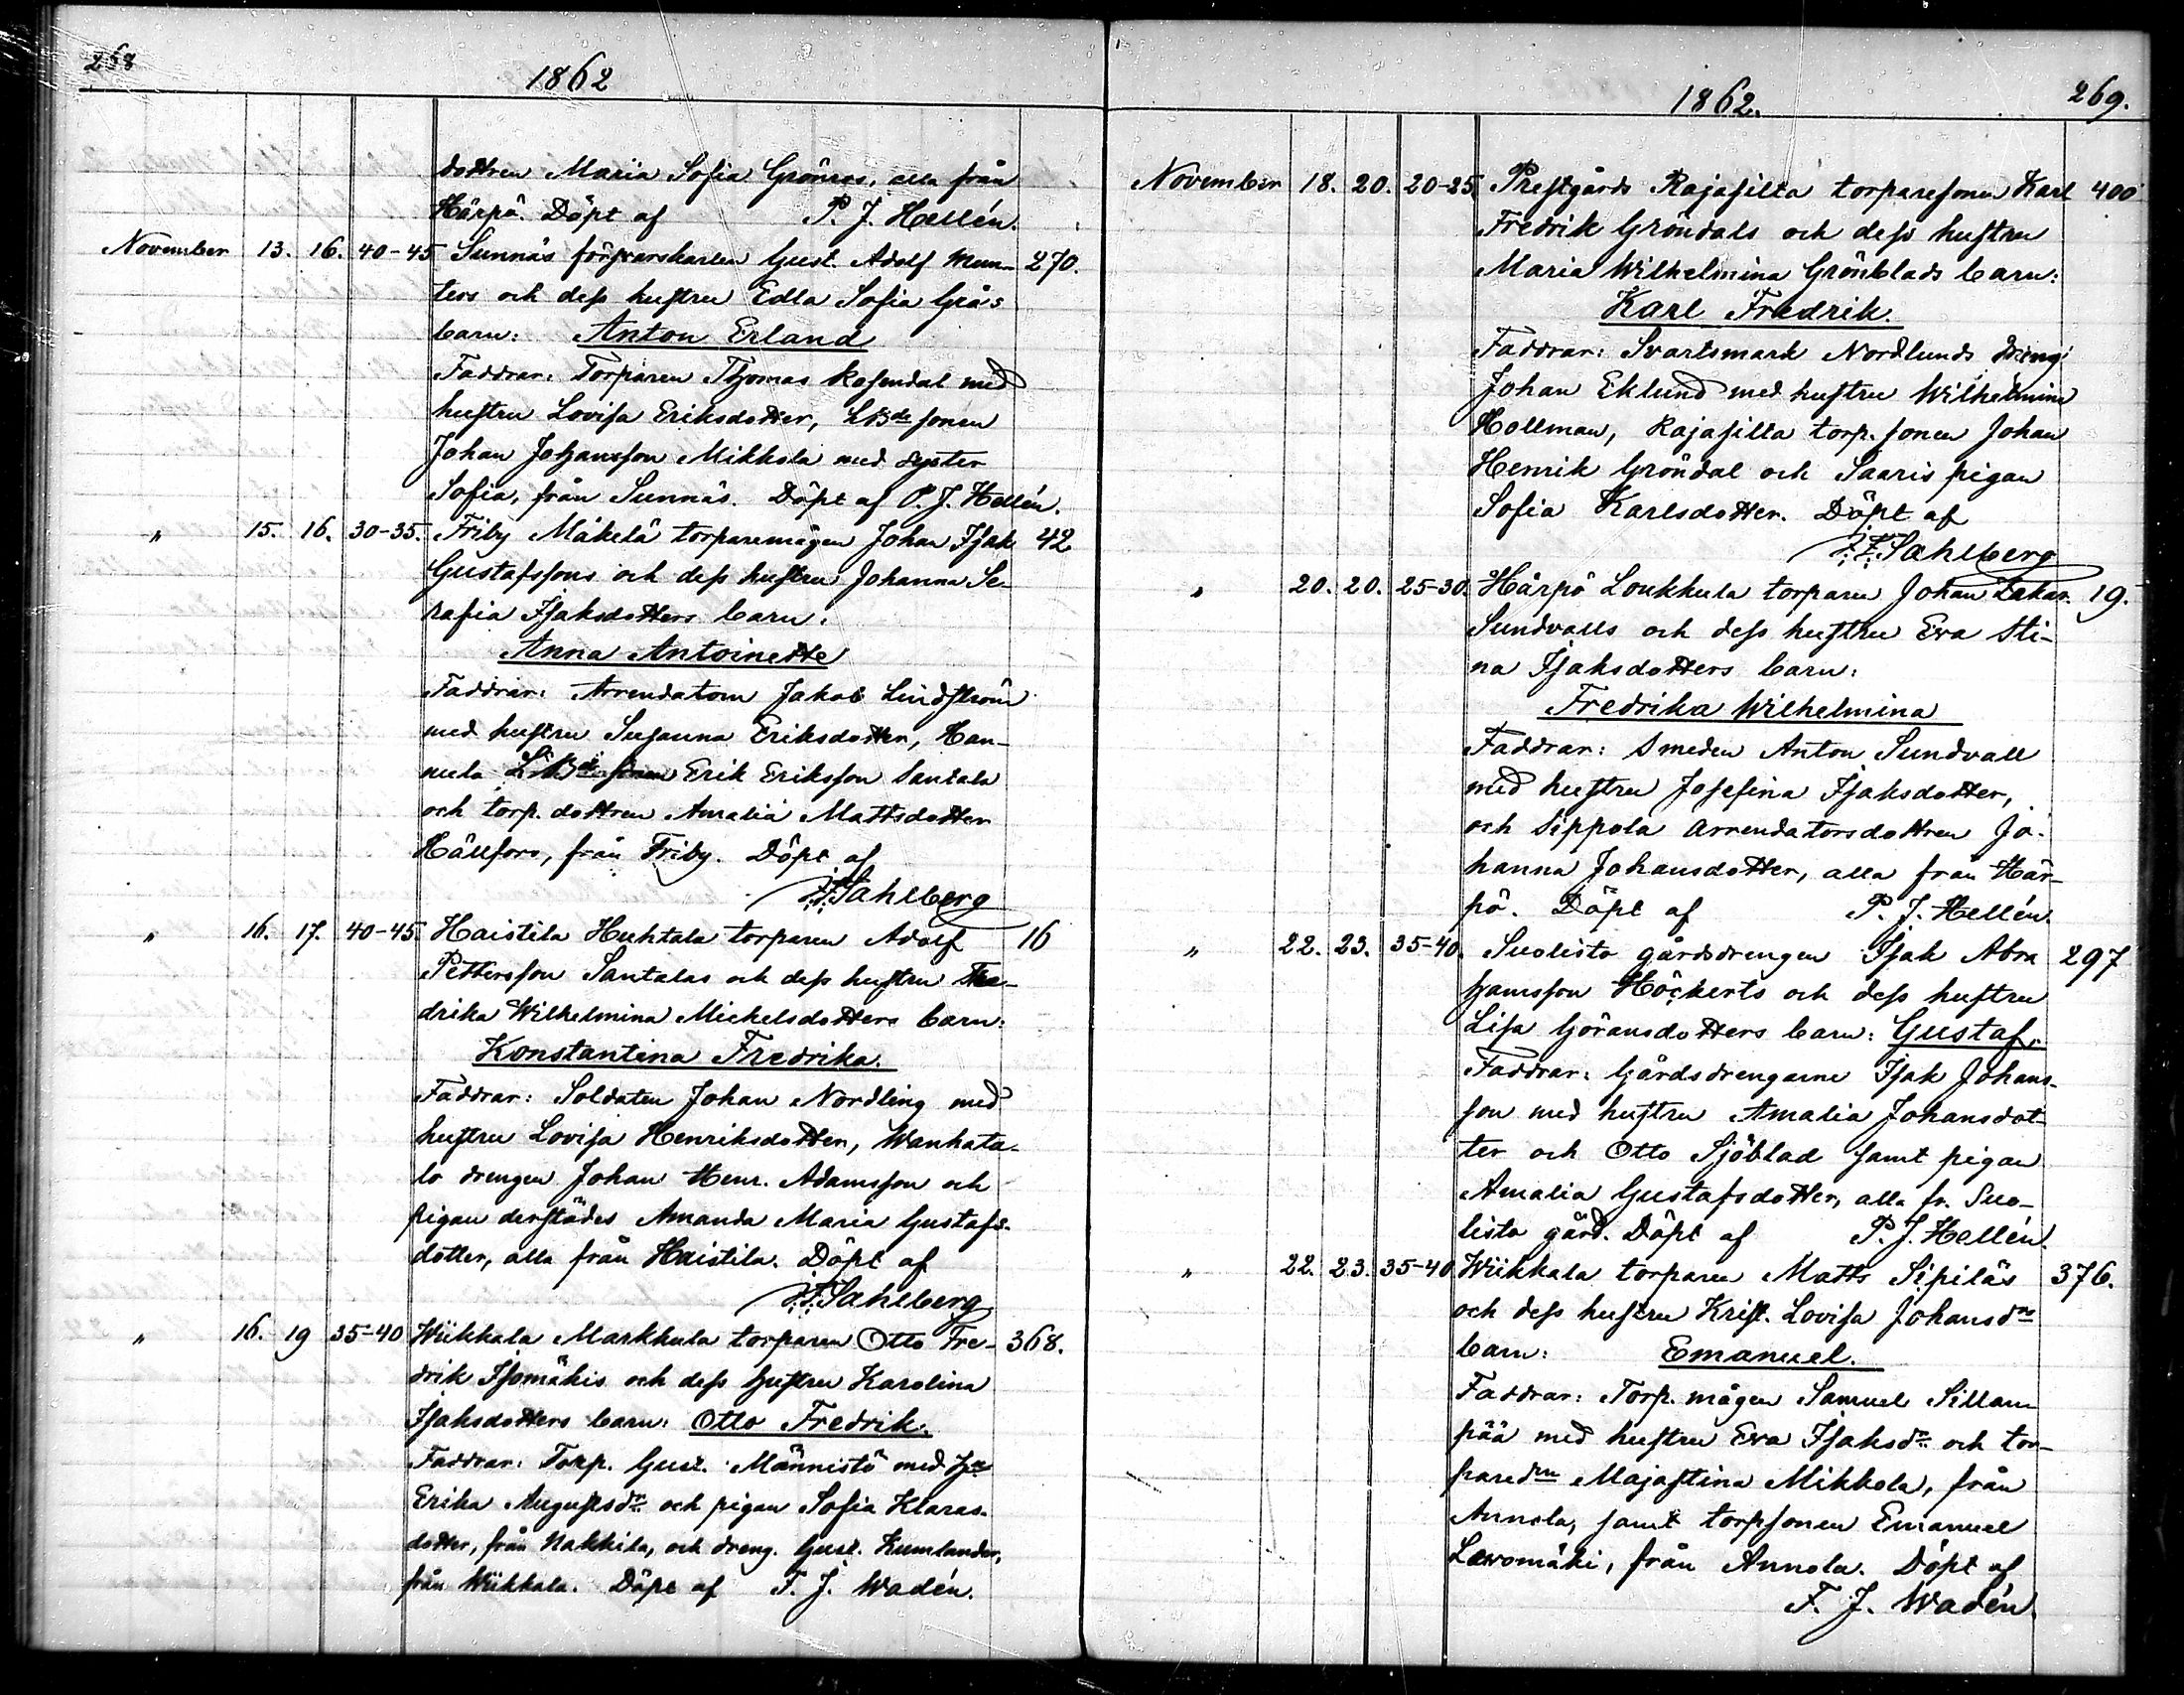 268
1862
dottren Maria Sofia Grönroos, alla från
Härpö. Döpt af P. J. Hellén.
November 13. 16. 40-45 Sunnäs försvarskarlen Gust. Adolf Mun- 270.
ters och dess hustru Edla Sofia Grås
barn: Anton Erland
Faddrar: Torparen Thomas Rosendal med
hustru Lovisa Eriksdotter, LBde sonen
Johan Johansson Mikkola med syster
Sofia, från Sunnäs. Döpt af P. J. Hellén.
" 15. 16. 30-35. Friby Mäkelä torparemågen Johan Isak 42
Gustafssons och dess hustru Johanna Se-
rafia Isaksdotters barn:
Anna Antoinette
Faddrar: Arrendatorn Jakob Lindström
med hustru Susanna Eriksdotter, Han-
nula Erik Eriksson Santala
och torp. dottren Amalia Mattsdotter
Hällfors, från Friby. Döpt af
Sahlberg
" 16. 17. 40-45. Haistila Huhtala torparen Adolf 16
Pettersson Santalas och dess hustru Fre-
drika Wilhelmina Mickelsdotters barn:
Konstantina Fredrika.
Faddrar: Soldaten Johan Nordling med
hustru Lovisa Henriksdotter, Wanhata-
lo drengen Johan Henr. Adamsson och
pigan derstädes Amanda Maria Gustafs-
dotter, alla från Haistila. Döpt af
Sahlberg
" 16. 19 35-40 Wiikkala Markkula torparen Otto Fre- 368.
drik Isomäkis och dess hustru Karolina
Isaksdotters barn: Otto Fredrik.
Faddrar: Torp. Gust. Männistö med hu
Erika Augustsdr och pigan Sofia Klaras-
dotter, från Nakkila, och dreng. Gust. Kumlander,
från Wiikkala. Döpt af F. J. Wadén.
1862. 269.
November 18. 20. 20-25. Prestgårds Rajasilta torparesonen Karl 400
Fredrik Gröndals och dess hustru
Maria Wilhelmina Grönblads barn:
Karl Fredrik.
Faddrar: Svartsmark Nordlunds dreng
Johan Eklund med hustru Wilhelmina
Hollman, Rajasilta torp. sonen Johan
Henrik Gröndal och Saaris pigan
Sofia Karlsdotter. Döpt af
Sahlberg
" 20. 20. 25-30. Härpö Loukkula torparen Johan Zakar. 19.
Sundvalls och dess hustru Eva Sti-
na Isaksdotters barn:
Fredrika Wilhelmina
Faddrar: Smeden Anton Sundvall
med hustru Josefina Isaksdotter,
och Sippola arrendatorsdottren Jo-
hanna Johansdotter, alla från Här-
pö. Döpt af P. J. Hellén.
" 22. 23. 35-40. Suolisto gårdsdrengen Isak Abra 297
hamsson Höckerts och dess hustru
Lisa Göransdotters barn: Gustaf.
Faddrar: Gårdsdrengarne Isak Johans-
son med hustru Amalia Johansdot-
ter och Otto Sjöblad samt pigan
Amalia Gustafsdotter, alla fr. Suo-
listo gård. Döpt af P. J. Hellén.
" 22. 23. 35-40 Wiikkala torparen Matts Sipiläs 376.
och dess hustru Krist. Lovisa Johansdrs
barn: Emanuel.
Faddrar: Torp. mågen Samuel Sillan
pää med hustru Eva Isaksdr och tor-
paredrn Majastina Mikkola, från
Annola, samt torpsonen Emanuel
Lewomäki, från Annola. Döpt af
F. J. Wadén.